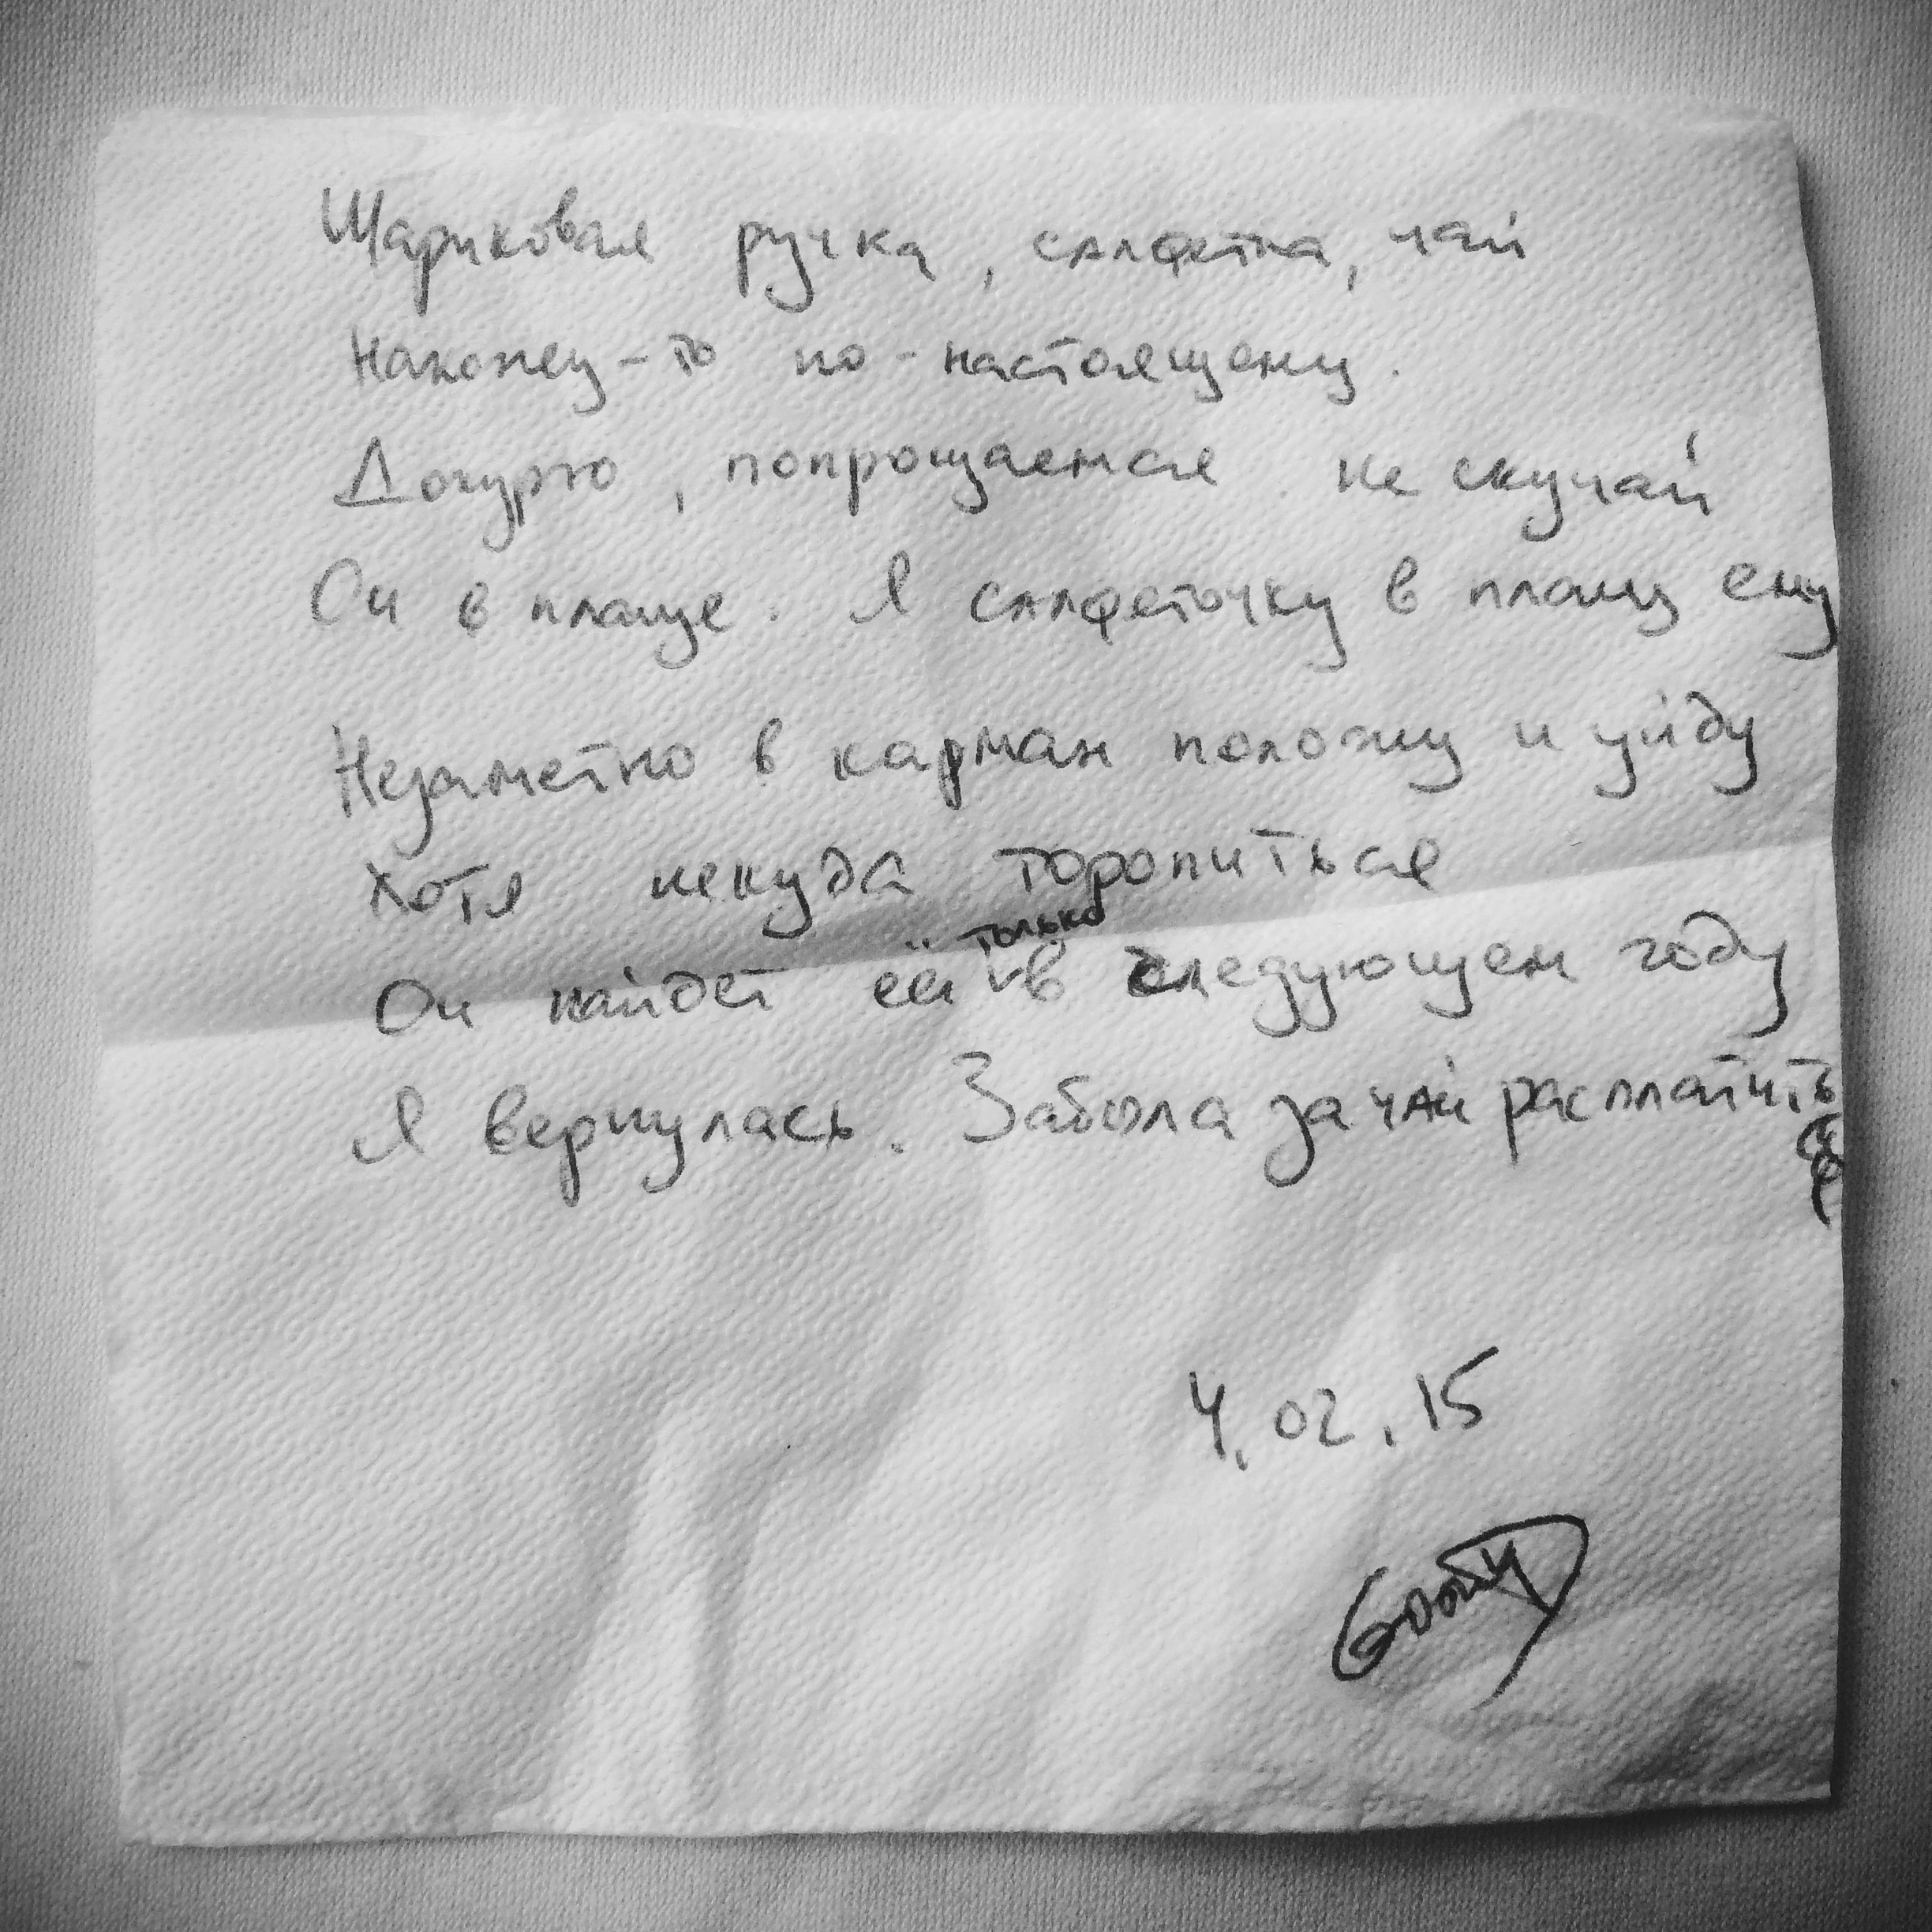 Шариковая ручка, салфетка, чай
Наконец-то по-настоящему.
Докурю, попрощаемся. Не скучай
Он в плаще. Я салфеточку в плащ ему
Незаметно в карман положу и уйду
Хотя некуда торопиться
только
Он найдёт её в следующем году
Я вернулась. Забыла за чай расплатить
ся
4.02.15